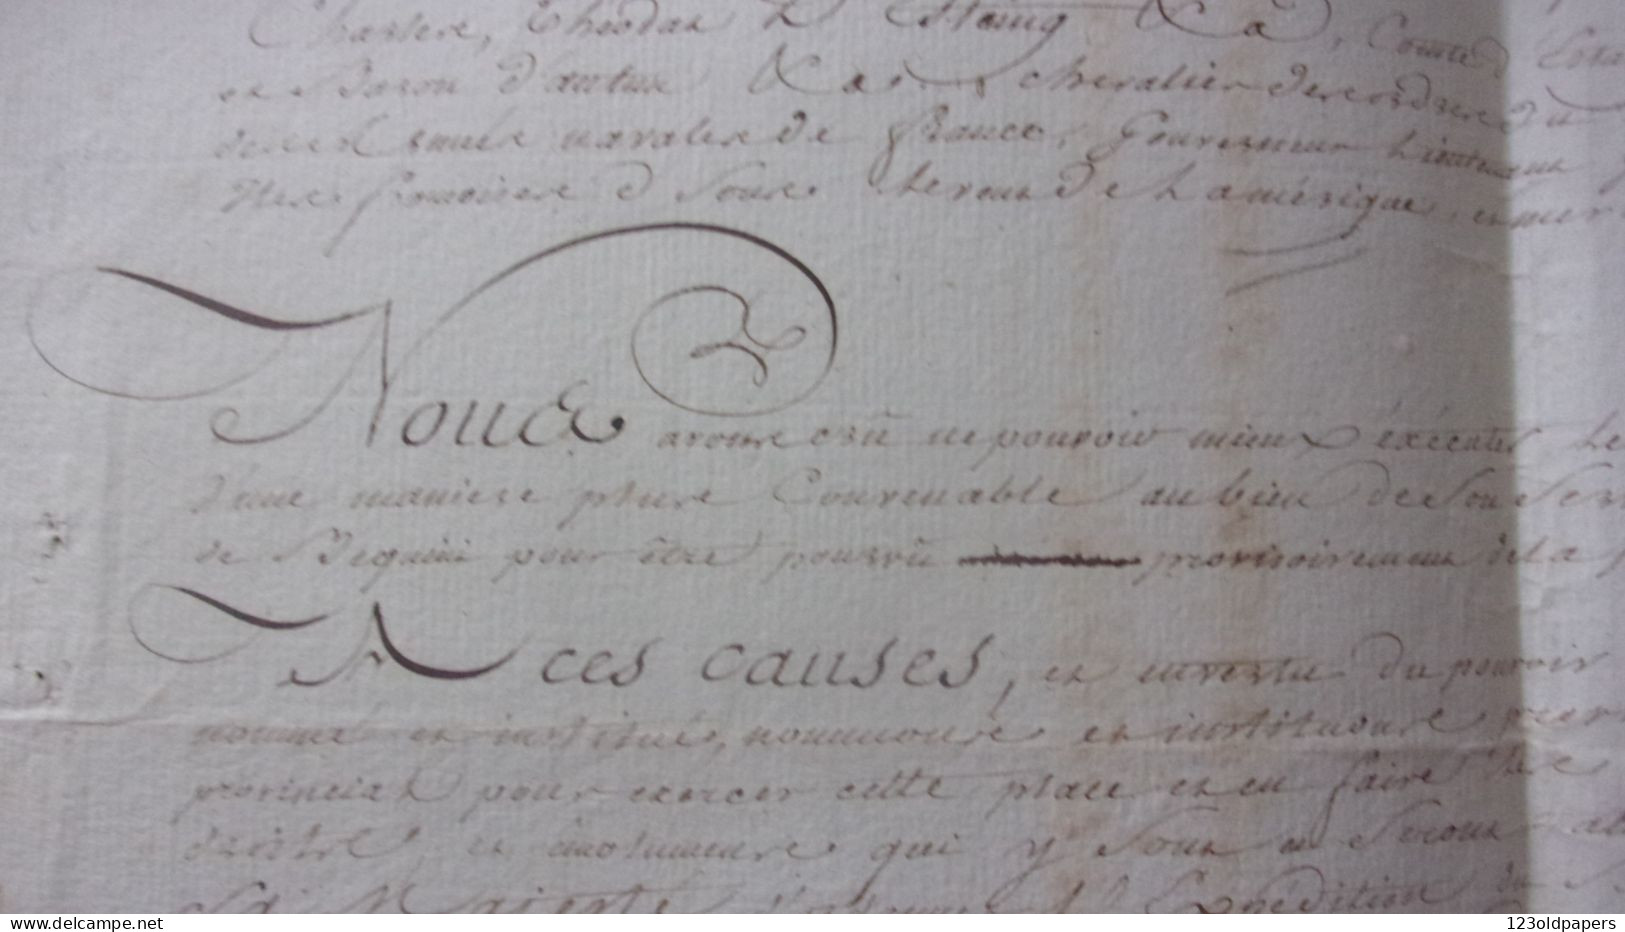 Charles, Theodat D'Estaing &ca, Comte d'Esta
et Baron d'antux &ca, chevalier des ordres du
des navales de france, Gouverneur Lieutenant
Isles françoises Sous Levent de L'amérique, et mer
Nous avons crû ne pouvoir mieux éxécuter Le
d'une maniere plus Convenable au bien de Son Ser
de pour être pourvû provisoirement de la
A ces causes, et en vertu du pouvoir
nommé et institué, nommons et instituons
provincial pour exercer cette place et en faire Les
droits, et émolumens qui y Sont ou Seront
Sa Majesté L'Expédition
123oldpapers